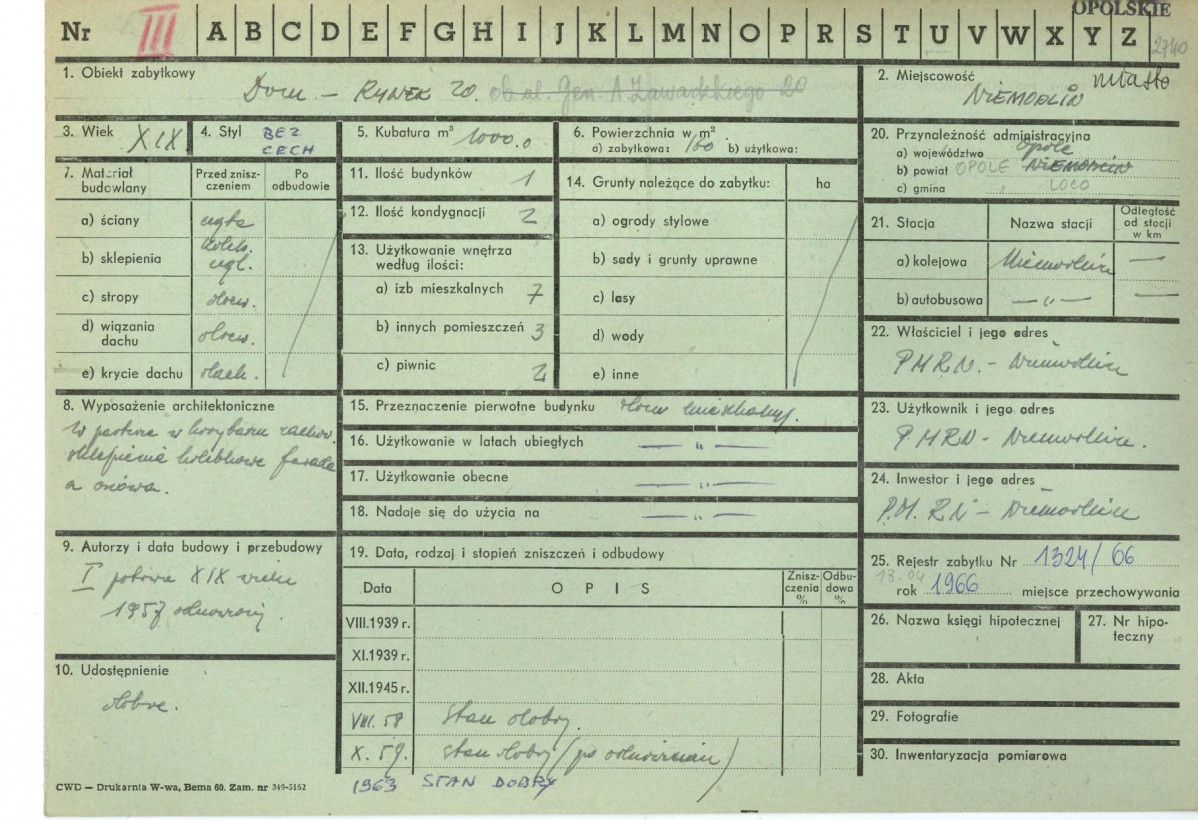 OPOLSKIE
Nr III A B C D E F G H I J K L M N O P R S T U V W X Y Z 2740
1. Obiekt zabytkowy
Dom – RYNEK 20. ob. ul. Gen. A. Zawadzkiego 20
2. Miejscowość miasto
NIEMODLIN
3. Wiek XIX
4. Styl BEZ CECH
5. Kubatura m³ 1000.0
6. Powierzchnia w m²
a) zabytkowa: 160 b) użytkowa:
20. Przynależność administracyjna
a) województwo Opole
b) powiat OPOLE NIEMODLIN
c) gmina LOCO
7. Materiał budowlany
Przed zniszczeniem
Po odbudowie
a) ściany cegła
b) sklepienia koleb. cegl.
c) stropy drew.
d) wiązania dachu drew.
e) krycie dachu dach.
11. Ilość budynków 1
12. Ilość kondygnacji 2
13. Użytkowanie wnętrza według ilości:
a) izb mieszkalnych 7
b) innych pomieszczeń 3
c) piwnic 2
14. Grunty należące do zabytku: ha
a) ogrody stylowe
b) sady i grunty uprawne
c) lasy
d) wody
e) inne
21. Stacja
Nazwa stacji
Odległość od stacji w km
a) kolejowa Niemodlin —
b) autobusowa —„— —
22. Właściciel i jego adres
PMRN. – Niemodlin
23. Użytkownik i jego adres
PMRN – Niemodlin.
24. Inwestor i jego adres
P.M.RN – Niemodlin
8. Wyposażenie architektoniczne
W parterze w korytarzu zachow.
sklepienia kolebkowe fasada
a nowa.
15. Przeznaczenie pierwotne budynku dom mieszkalny.
16. Użytkowanie w latach ubiegłych —„—
17. Użytkowanie obecne —„—
18. Nadaje się do użycia na —„—
9. Autorzy i data budowy i przebudowy
I połowa XIX wieku
1957 odnowiony.
10. Udostępnienie
dobre.
19. Data, rodzaj i stopień zniszczeń i odbudowy
Data
OPIS
Zniszczenia %
Odbudowa %
VIII.1939 r.
XI.1939 r.
XII.1945 r.
VIII. 58 Stan dobry.
X. 59. stan dobry (po odnowieniu)
1963 STAN DOBRY
25. Rejestr zabytku Nr 1324/66
18.04 rok 1966 miejsce przechowywania
26. Nazwa księgi hipotecznej
27. Nr hipoteczny
28. Akta
29. Fotografie
30. Inwentaryzacja pomiarowa
CWD — Drukarnia W-wa, Bema 60. Zam. nr 349-5162